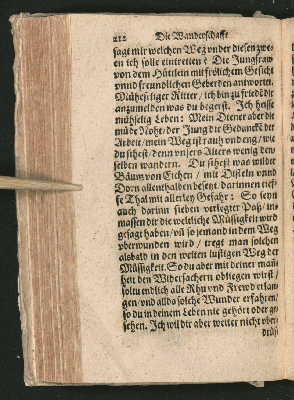 212 Die Wanderschafft
sagt mir welchen Weg vnder diesen zwe-
en ich solle eintretten? Die Jungfraw
von dem Hüttlein mit frölichem Gesicht
vnnd freundlichen Geberden antwortet.
Mühesteliger Ritter / ich bin zu friede dir
anzumelden was du begerst. Ich heisse
mühselig Leben: Mein Diener aber die
müde Rohe / der Jung die Gedancken der
Arbeit / mein Weg ist rauh vnd eng / wie
du sihest / denn vnsers Alters wenig den-
selben wandern. Du sihest was wilder
Bäum von Eichen / mit Disteln vnnd
Dorn allenthalben besetzt / darinnen tief-
fe Thal mit allerley Gefahr: So seyn
auch darinn sieben verlegter Paß / in-
massen dir die weltliche Müssigkeit wird
gesagt haben / vñ so jemand in dem Weg
vberwunden wird / tregt man solchen
alsbald in den weiten lustigen Weg der
Müssigkeit. So du aber mit deiner mañ-
heit den Widersachern obliegen wirst /
soltu endlich alle Rhu vnd Frewd erlan-
gen / vnd allda solche Wunder erfahren /
so du in deinem Leben nie gehört oder ge-
sehen. Ich wil dir aber weiter nicht vber-
drüß